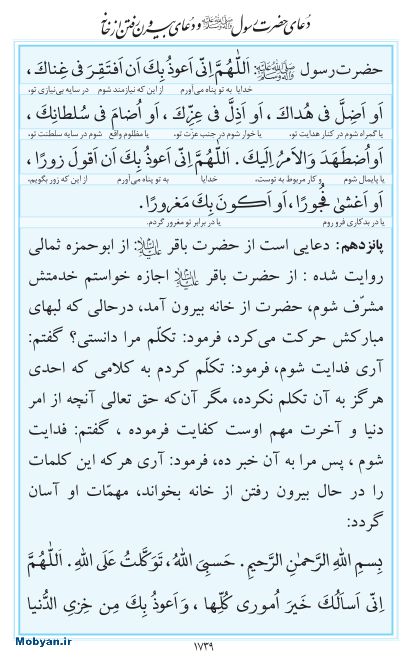 دعای حضرت رسول ﷺ و دعای بیرون رفتن از خانه
حضرت رسول ﷺ: اَللّٰهُمَّ اِنّی اَعوذُ بِكَ اَن اَفتَقِرَ فی غِناكَ ،
خدایا به تو پناه می‌آورم از این که نیازمند شوم در سایه بی‌نیازی تو،
اَو اَضِلَّ فی هُداكَ ، اَو اَذِلَّ فی عِزِّكَ ، اَو اُضامَ فی سُلطانِكَ ،
یا گمراه شوم در کنار هدایت تو، یا خوار شوم در جنب عزت تو، یا مظلوم واقع شوم در سایه سلطنت تو،
اَو اُضطَهَدَ وَالاَمرُ اِلَیكَ . اَللّٰهُمَّ اِنّی اَعوذُ بِكَ اَن اَقولَ زورًا ،
یا پایمال شوم و کار مربوط به توست. خدایا به تو پناه می‌آورم از این که زور بگویم،
اَو اَغشیٰ فُجورًا ، اَو اَكونَ بِكَ مَغرورًا .
یا در بدکاری فرو روم یا در برابر تو مغرور گردم.
پانزدهم: دعایی است از حضرت باقر علیه‌السلام: از ابوحمزه ثمالی
روایت شده : از حضرت باقر علیه‌السلام اجازه خواستم خدمتش
مشرّف شوم، حضرت از خانه بیرون آمد، درحالی که لبهای
مبارکش حرکت می‌کرد، فرمود: تکلّم مرا دانستی؟ گفتم:
آری فدایت شوم، فرمود: تکلّم کردم به کلامی که احدی
هرگز به آن تکلم نکرده، مگر آن‌که حق تعالی آنچه از امر
دنیا و آخرت مهم اوست کفایت فرموده ، گفتم: فدایت
شوم ، پس مرا به آن خبر ده، فرمود: آری هرکه این کلمات
را در حال بیرون رفتن از خانه بخواند، مهمّات او آسان
گردد:
بِسمِ اللهِ الرَّحمٰنِ الرَّحیمِ . حَسبِیَ اللهُ ، تَوَكَّلتُ عَلَی اللهِ . اَللّٰهُمَّ
اِنّی اَسأَلُكَ خَیرَ اُموری كُلِّها ، وَ اَعوذُ بِكَ مِن خِزیِ الدُّنیا
Mobyan.ir
۱۷۳۹